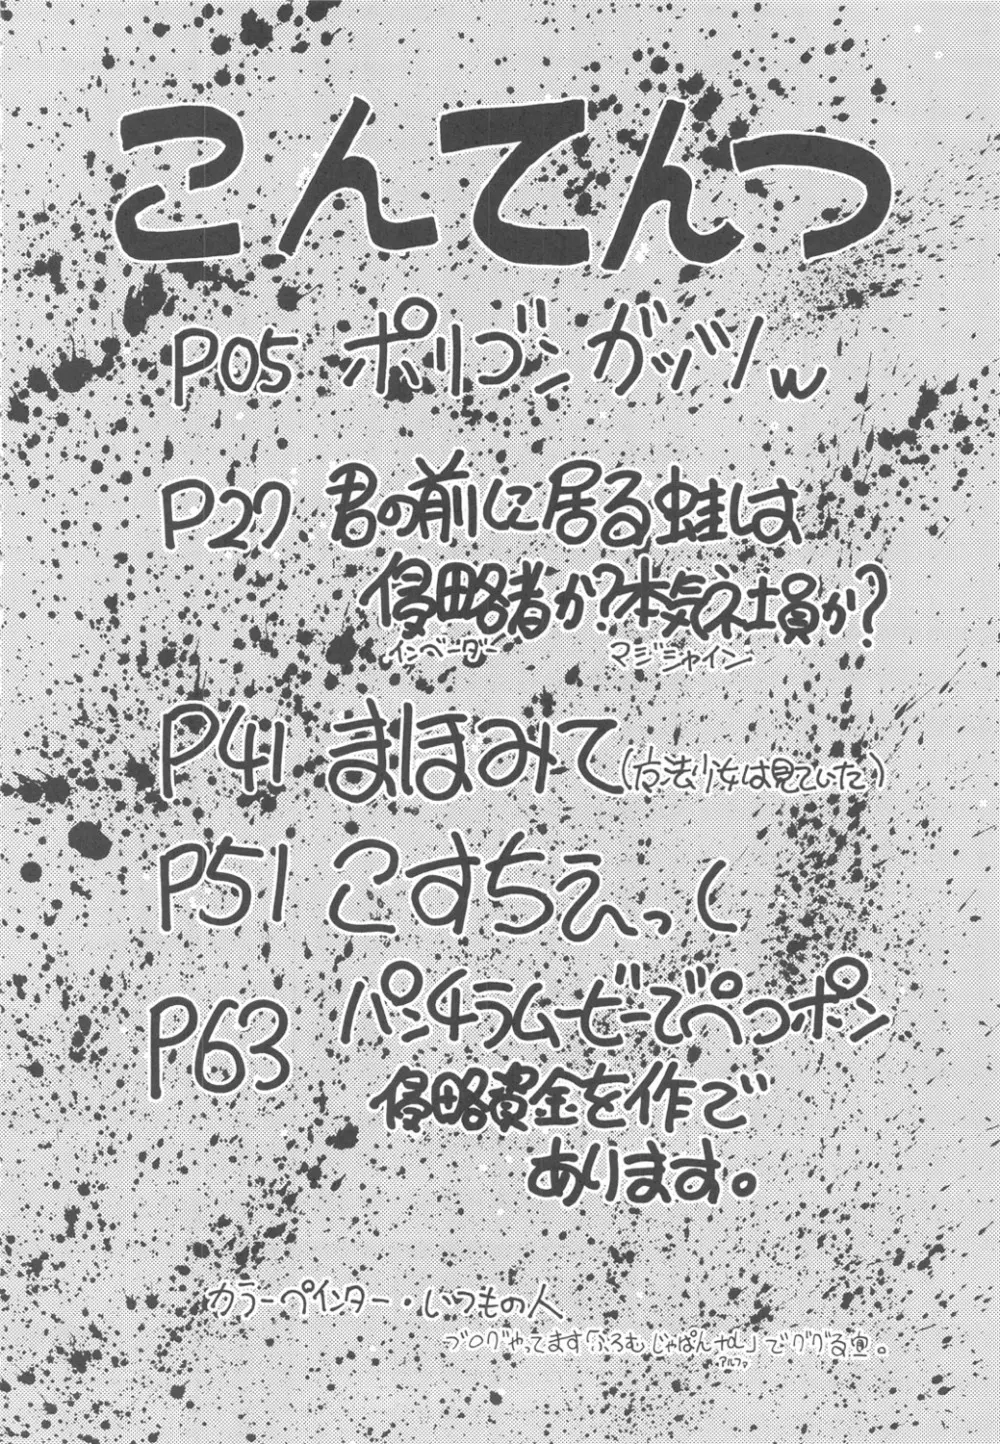 こんてんつ
P05 ポリゴンガッツw
P27 君の前に居る蛙は
侵略者か?本気ネ土員か?
インベーダー マジシャイン
P41 まほみて(方法少女は見ていた)
P51 こすちぇっく
P63 パンチラムービーでぺっポン
侵略資金を作で
あります。
カラーペインター・いつもの人
ブログやってます「ふろむじゃぱん+α」でググる宜。
アルファ